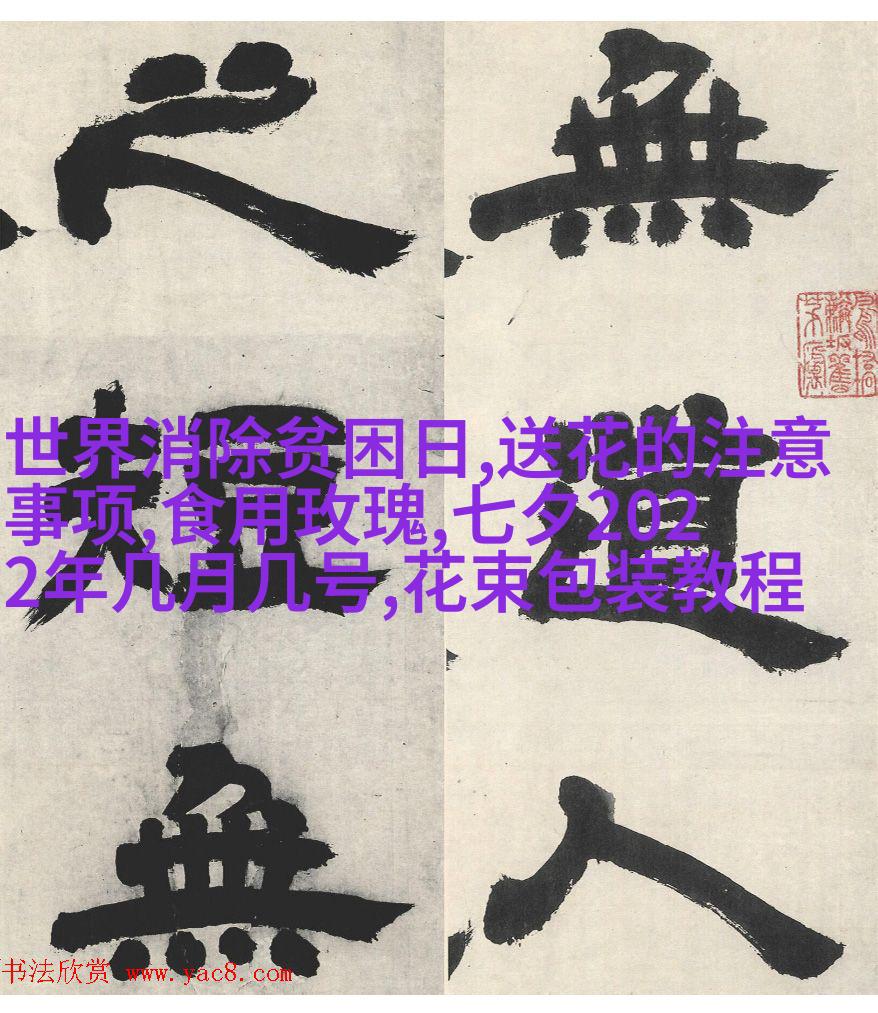 無道人
之短無
世界消除贫困日,送花的注意
事项,食用玫瑰,七夕202
2年几月几号,花束包装教程
书法欣赏 www.yac8.com